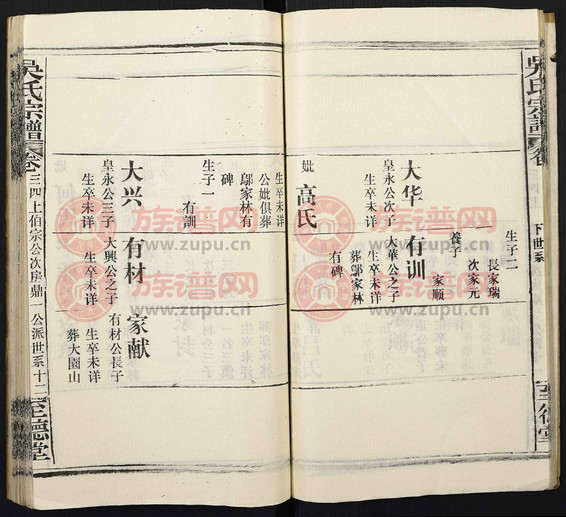 吳氏宗譜
卷
下世系
至德堂
生子二
長家瑞
次家元
養子一
家順
大华
皇永公次子
生卒未详
妣 高氏
生卒未详
公妣俱葬
鄔家林有
碑
生子一
有訓
有训
大華公之子
生卒未详
葬鄔家林
有碑
大兴
皇永公三子
生卒未详
有材
大興公之子
生卒未详
家献
有材公長子
生卒未详
葬大園山
吳氏宗譜
卷三四上伯宗公次房鼎一公派世系十二
至德堂
族谱网
www.zupu.cn
族谱网
www.zupu.cn
族谱网
www.zupu.cn
族谱网
www.zupu.cn